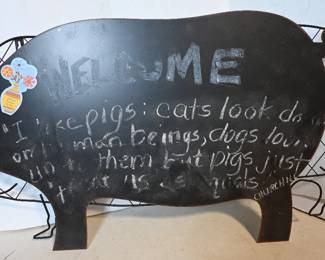 WELCOME
"I like pigs: cats look do
on human beings, dogs look
up to them but pigs just
treat us as equals"
CHURCHILL